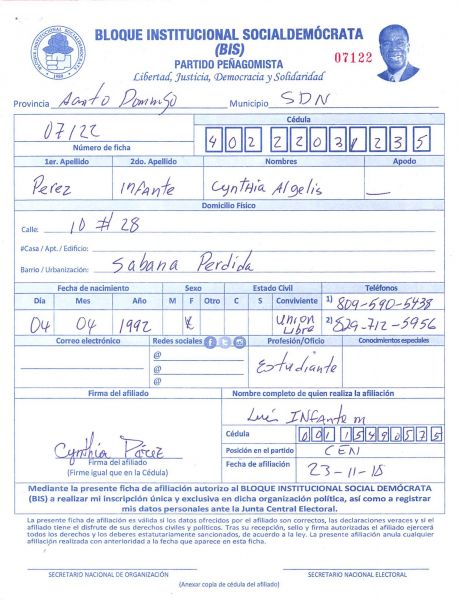 BLOQUE INSTITUCIONAL SOCIALDEMÓCRATA
(BIS)
PARTIDO PEÑAGOMISTA
07122
Libertad, Justicia, Democracia y Solidaridad
Provincia Santo Domingo Municipio SDN
07122
Número de ficha
Cédula
402 2203 235
1er. Apellido 2do. Apellido Nombres Apodo
Perez Infante Cynthia Algelis —
Domicilio Físico
Calle: 10 # 28
#Casa / Apt. / Edificio:
Barrio / Urbanización: Sabana Perdida
Fecha de nacimiento Sexo Estado Civil Teléfonos
Día Mes Año M F Otro C S Conviviente 1) 809-590-5438
04 04 1992 x Union Libre 2) 829-712-5956
Correo electrónico Redes sociales Profesión/Oficio Conocimientos especiales
@
@
@
Estudiante
Firma del afiliado Nombre completo de quien realiza la afiliación
Luis INFante m
Cédula
001 15490575
Cynthia Pérez
Firma del afiliado
(Firme igual que en la Cédula)
Posición en el partido CEN
Fecha de afiliación 23-11-18
Mediante la presente ficha de afiliación autorizo al BLOQUE INSTITUCIONAL SOCIAL DEMÓCRATA
(BIS) a realizar mi inscripción única y exclusiva en dicha organización política, así como a registrar
mis datos personales ante la Junta Central Electoral.
La presente ficha de afiliación es válida si los datos ofrecidos por el afiliado son correctos, las declaraciones veraces y si el
afiliado tiene el disfrute de sus derechos civiles y políticos. Tras su recepción, sello y firma autorizadas el afiliado ejercerá
todos los derechos y los deberes estatutariamente sancionados, de acuerdo a la ley. La presente afiliación anula cualquier
afiliación realizada con anterioridad a la fecha que aparece en esta ficha.
SECRETARIO NACIONAL DE ORGANIZACIÓN SECRETARIO NACIONAL ELECTORAL
(Anexar copia de cédula del afiliado)